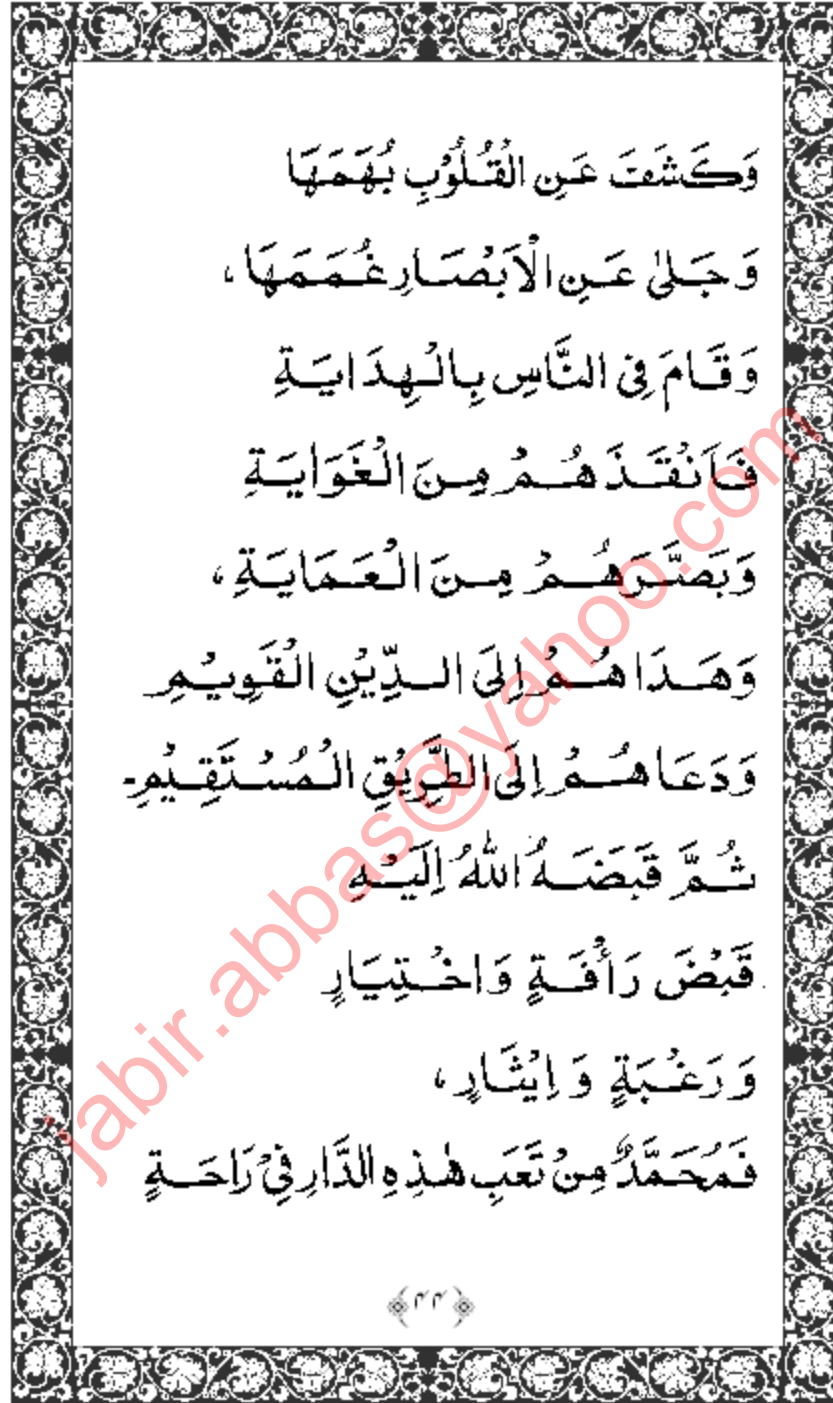 وَكَشَفَ عَنِ الْقُلُوْبِ بُهَمَهَا
وَجَلىٰ عَنِ الْاَبْصَارِ غُمَمَهَا،
وَقَامَ فِى النَّاسِ بِالْهِدَايَةِ
فَاَنْقَذَهُمْ مِنَ الْغَوَايَةِ
وَبَصَّرَهُمْ مِنَ الْعَمَايَةِ،
وَهَدَاهُمْ اِلَى الدِّيْنِ الْقَوِيْمِ
وَدَعَاهُمْ اِلَى الطَّرِيْقِ الْمُسْتَقِيْمِ۔
ثُمَّ قَبَضَهُ اللهُ اِلَيْهِ
قَبْضَ رَأْفَةٍ وَاخْتِيَارٍ
وَرَغْبَةٍ وَاِيْثَارٍ،
فَمُحَمَّدٌ مِنْ تَعَبِ هٰذِهِ الدَّارِ فِىْ رَاحَةٍ
﴿۴۴﴾
jabir.abbas@yahoo.com